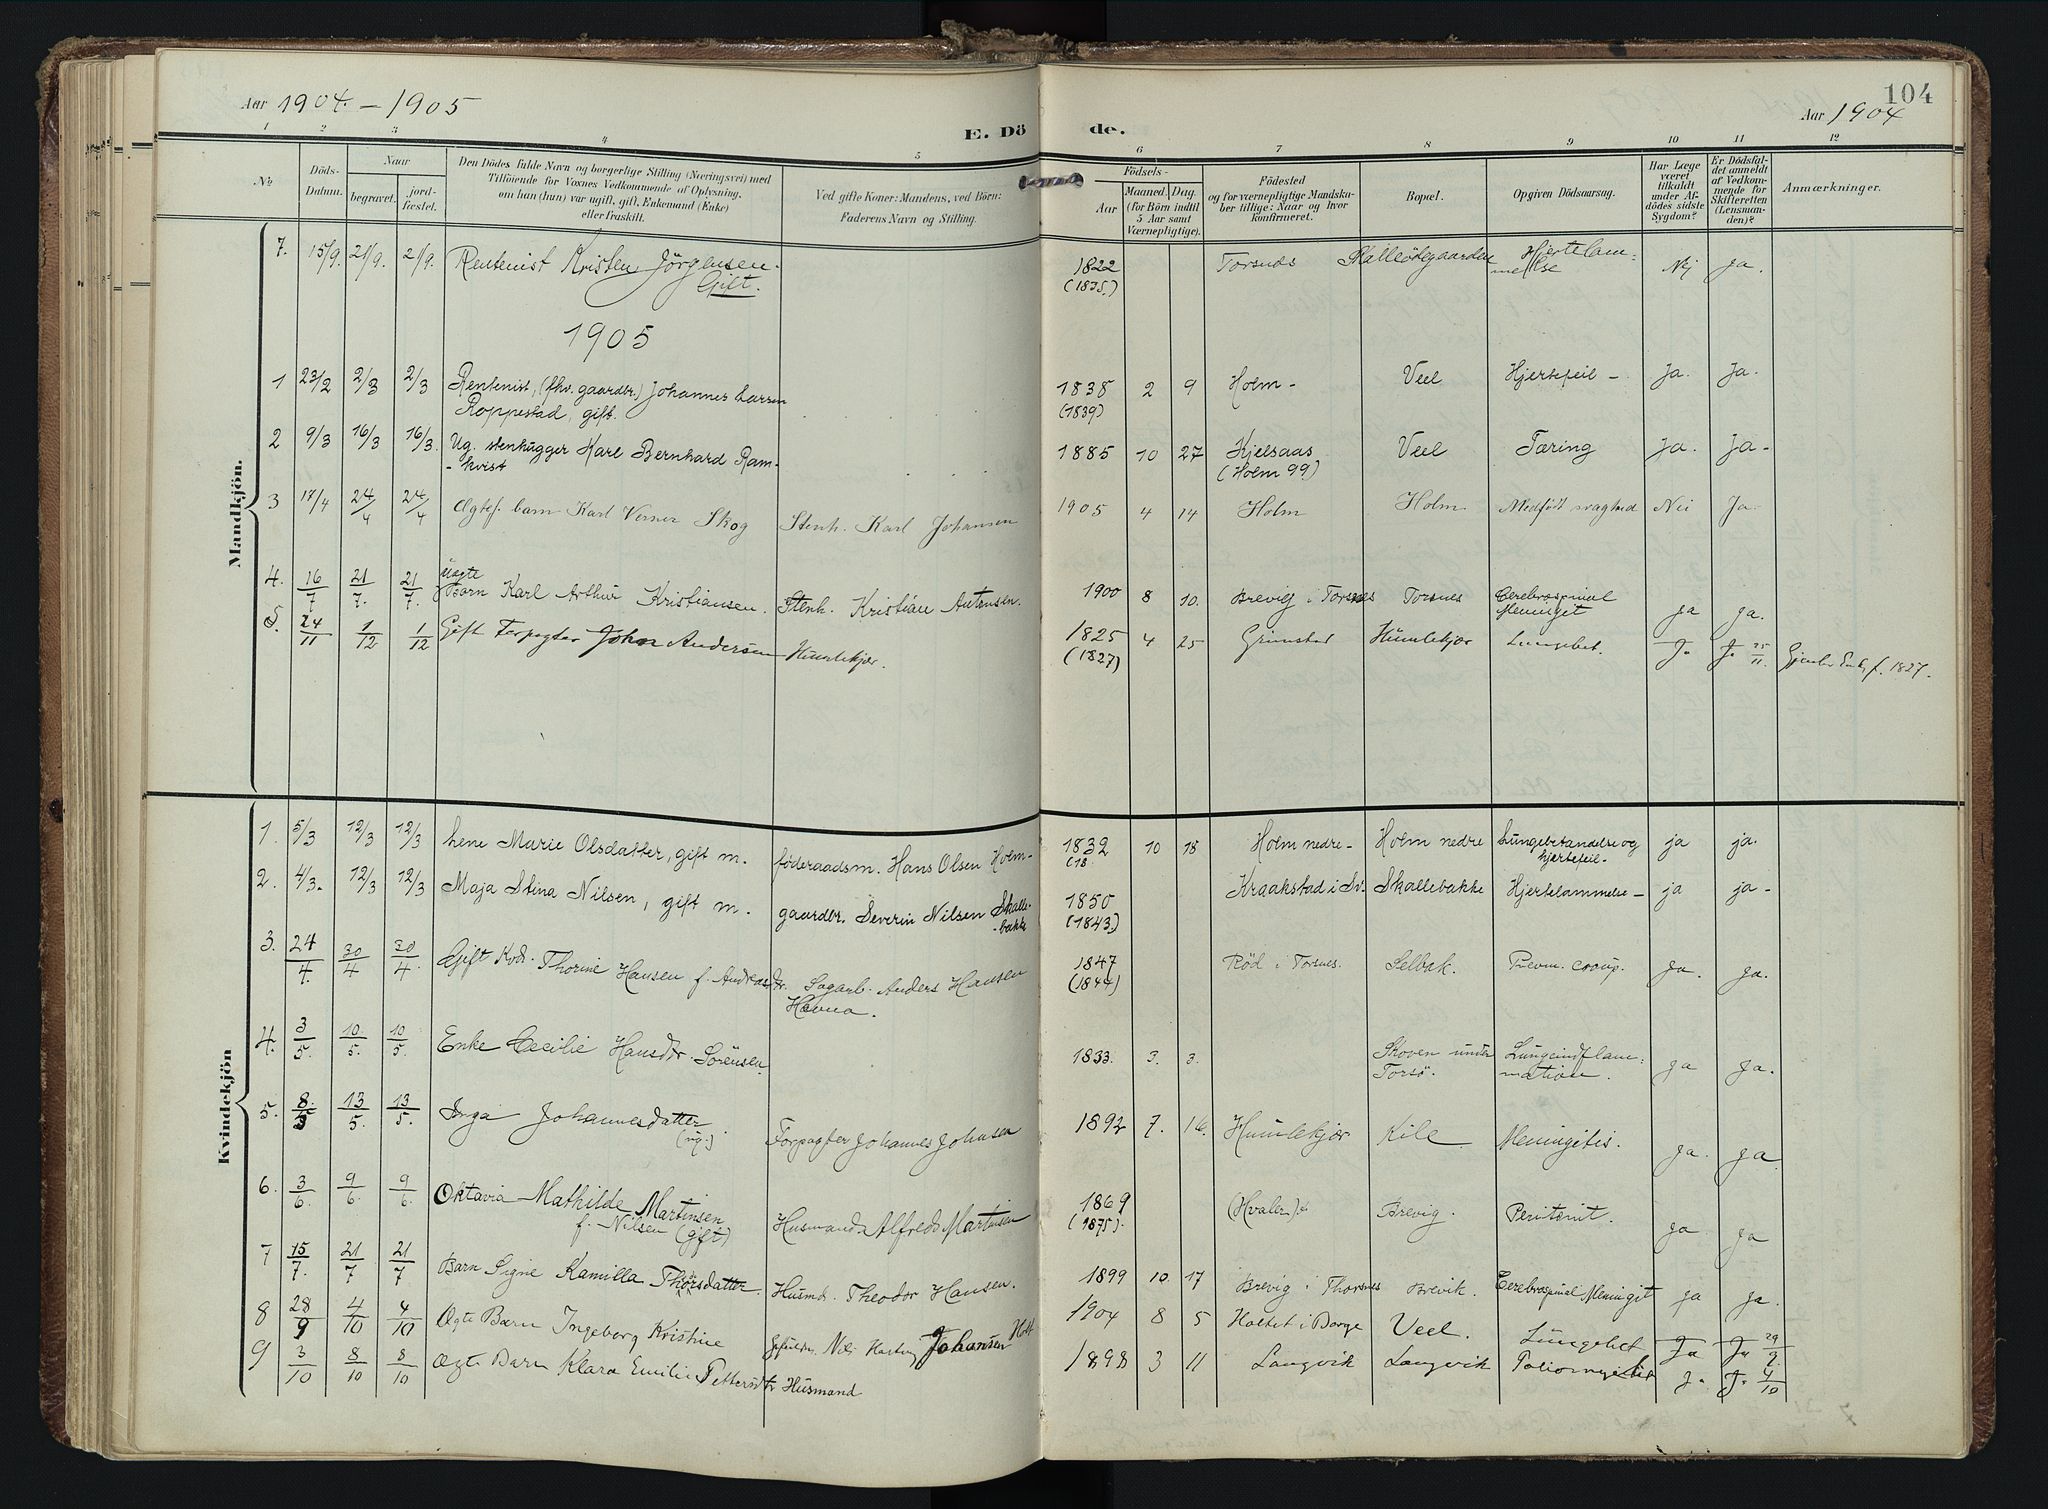 Aar 1904. – 1905
E. Dö
de.
104
Aar 1904
1 2 3 4 5 6 7 8 9 10 11 12
No
Döds-
Datum.
Naar
begravet.
jord-
fæstet.
Den Dödes fulde Navn og borgerlige Stilling (Næringsvei) med
Tilföiende for Voxnes Vedkommende af Oplysning,
om han (hun) var ugift, gift, Enkemand (Enke)
eller fraskilt.
Ved gifte Koner: Mandens, ved Börn:
Faderens Navn og Stilling.
Födsels-
Aar
Maaned. Dag.
(for Börn indtil
5 Aar samt
Værnepligtige).
Födested
og for værnepligtige Mandska-
ber tillige: Naar og hvor
konfirmeret.
Bopæl.
Opgiven Dödsaarsag.
Har Læge
været
tilkaldt
under Af-
dödes sidste
Sygdom?
Er Dödsfal-
det anmeldt
af Vedkom-
mende for
Skifteretten
(Lensman-
den)?
Anmærkninger.
Mandkjön.
7. 15/9. 21/9. 21/9. Rentenist Kristen Jörgensen. 1822 Torsnes Skalleödegaarden Hjertelam=
Gift. (1835.) melse Nej Ja.
1905
1 23/2 2/3 2/3 Rentenist, (fhv. gaardbr.) Johannes Larsen 1838 2 9 Holm - Veel Hjertefeil - Ja. Ja.
Roppestad, gift. (1839)
2 9/3 16/3 16/3. Ug. stenhugger Karl Bernhard Ram- 1885 10 27 Kjelsaas Veel Tæring Ja. Ja -
- kvist (Holm 99)
3 17/4 24/4 24/4 Ægtef. barn Karl Verner Skog Stenh. Karl Johansen 1905 4 14 Holm Holm Medfödt svaghed Nei Ja.
4. 16/7 21/7. 21/7. Uægte
Barn Karl Arthur Kristiansen. Stenh. Kristian Antonsen. 1900 8 10. Brevig i Torsnes Torsnes Cerebrospinal
Meninget ja ja.
5. 24/11 1/12 1/12 Gift Forpagter John Andersen Humlekjær. 1825 4 25 Grimstad Humlekjær Lungebet. J. J. 25/11. f. 1827.
(1827)
Kvindekjön
1. 5/3 12/3 12/3 Lene Marie Olsdatter, gift m. föderaadsm. Hans Olsen Holm- 1832 10 18 Holm nedre - Holm nedre Lungebetændelse og ja ja.
(18 hjertefeil -
2. 4/3. 12/3 12/3 Maja Stina Nilsen, gift m. gaardbr. Severin Nilsen Skalle- 1850 Kraakstad i Sv. Skallebakke Hjertelammelse - ja ja -
-bakke (1843)
3. 24/4. 30/4 30/4. Gift Kvd. Thorine Hansen f. Andreasdtr. Sagarb. Anders Hansen 1847 Röd i Torsnes. Selbak. Pnevm. croup. Ja. Ja.
Havna. (1844)
4. 3/5. 10./5. 10/5. Enke Cecilie Hansdtr. Sörensen. 1833. 3. 3. Skoven under Lungeindflam=
Torsö. mation. ja Ja.
5. 8./5 13/5. 13/5. Inga Johannesdatter Forpagter Johannes Johnsen 1892 7. 16. Humlekjær Kile Meningitis. Ja. Ja.
(ug.)
6. 3/6. 9/6. 9/6. Oktavia Mathilde Martinsen Husmand Alfred Martinsen 1869 (Hvaler) Brevig. Peritonit. ja Ja
f. Nilsen (gift) (1875).
7 15/7. 21/7 21/7 Barn Signe Kamilla Thorsdatter. Husmd. Theodor Hansen. 1899 10. 17 Brevig i Thorsnes Brevik. Cerebrospinal Meningit ja Ja.
8 28/9 4/10 4/10 Ægte Barn Ingeborg Kristine Nils Johansen 1904 8 5 Holtet i Borge Veel. Lungebet Ja Ja 29/9.
9 3/10 8/10 8/10 Ægte Barn Klara Emilie Pettersdtr Husmand 1898 3 11 Langvik Langvik J. J. 4/10